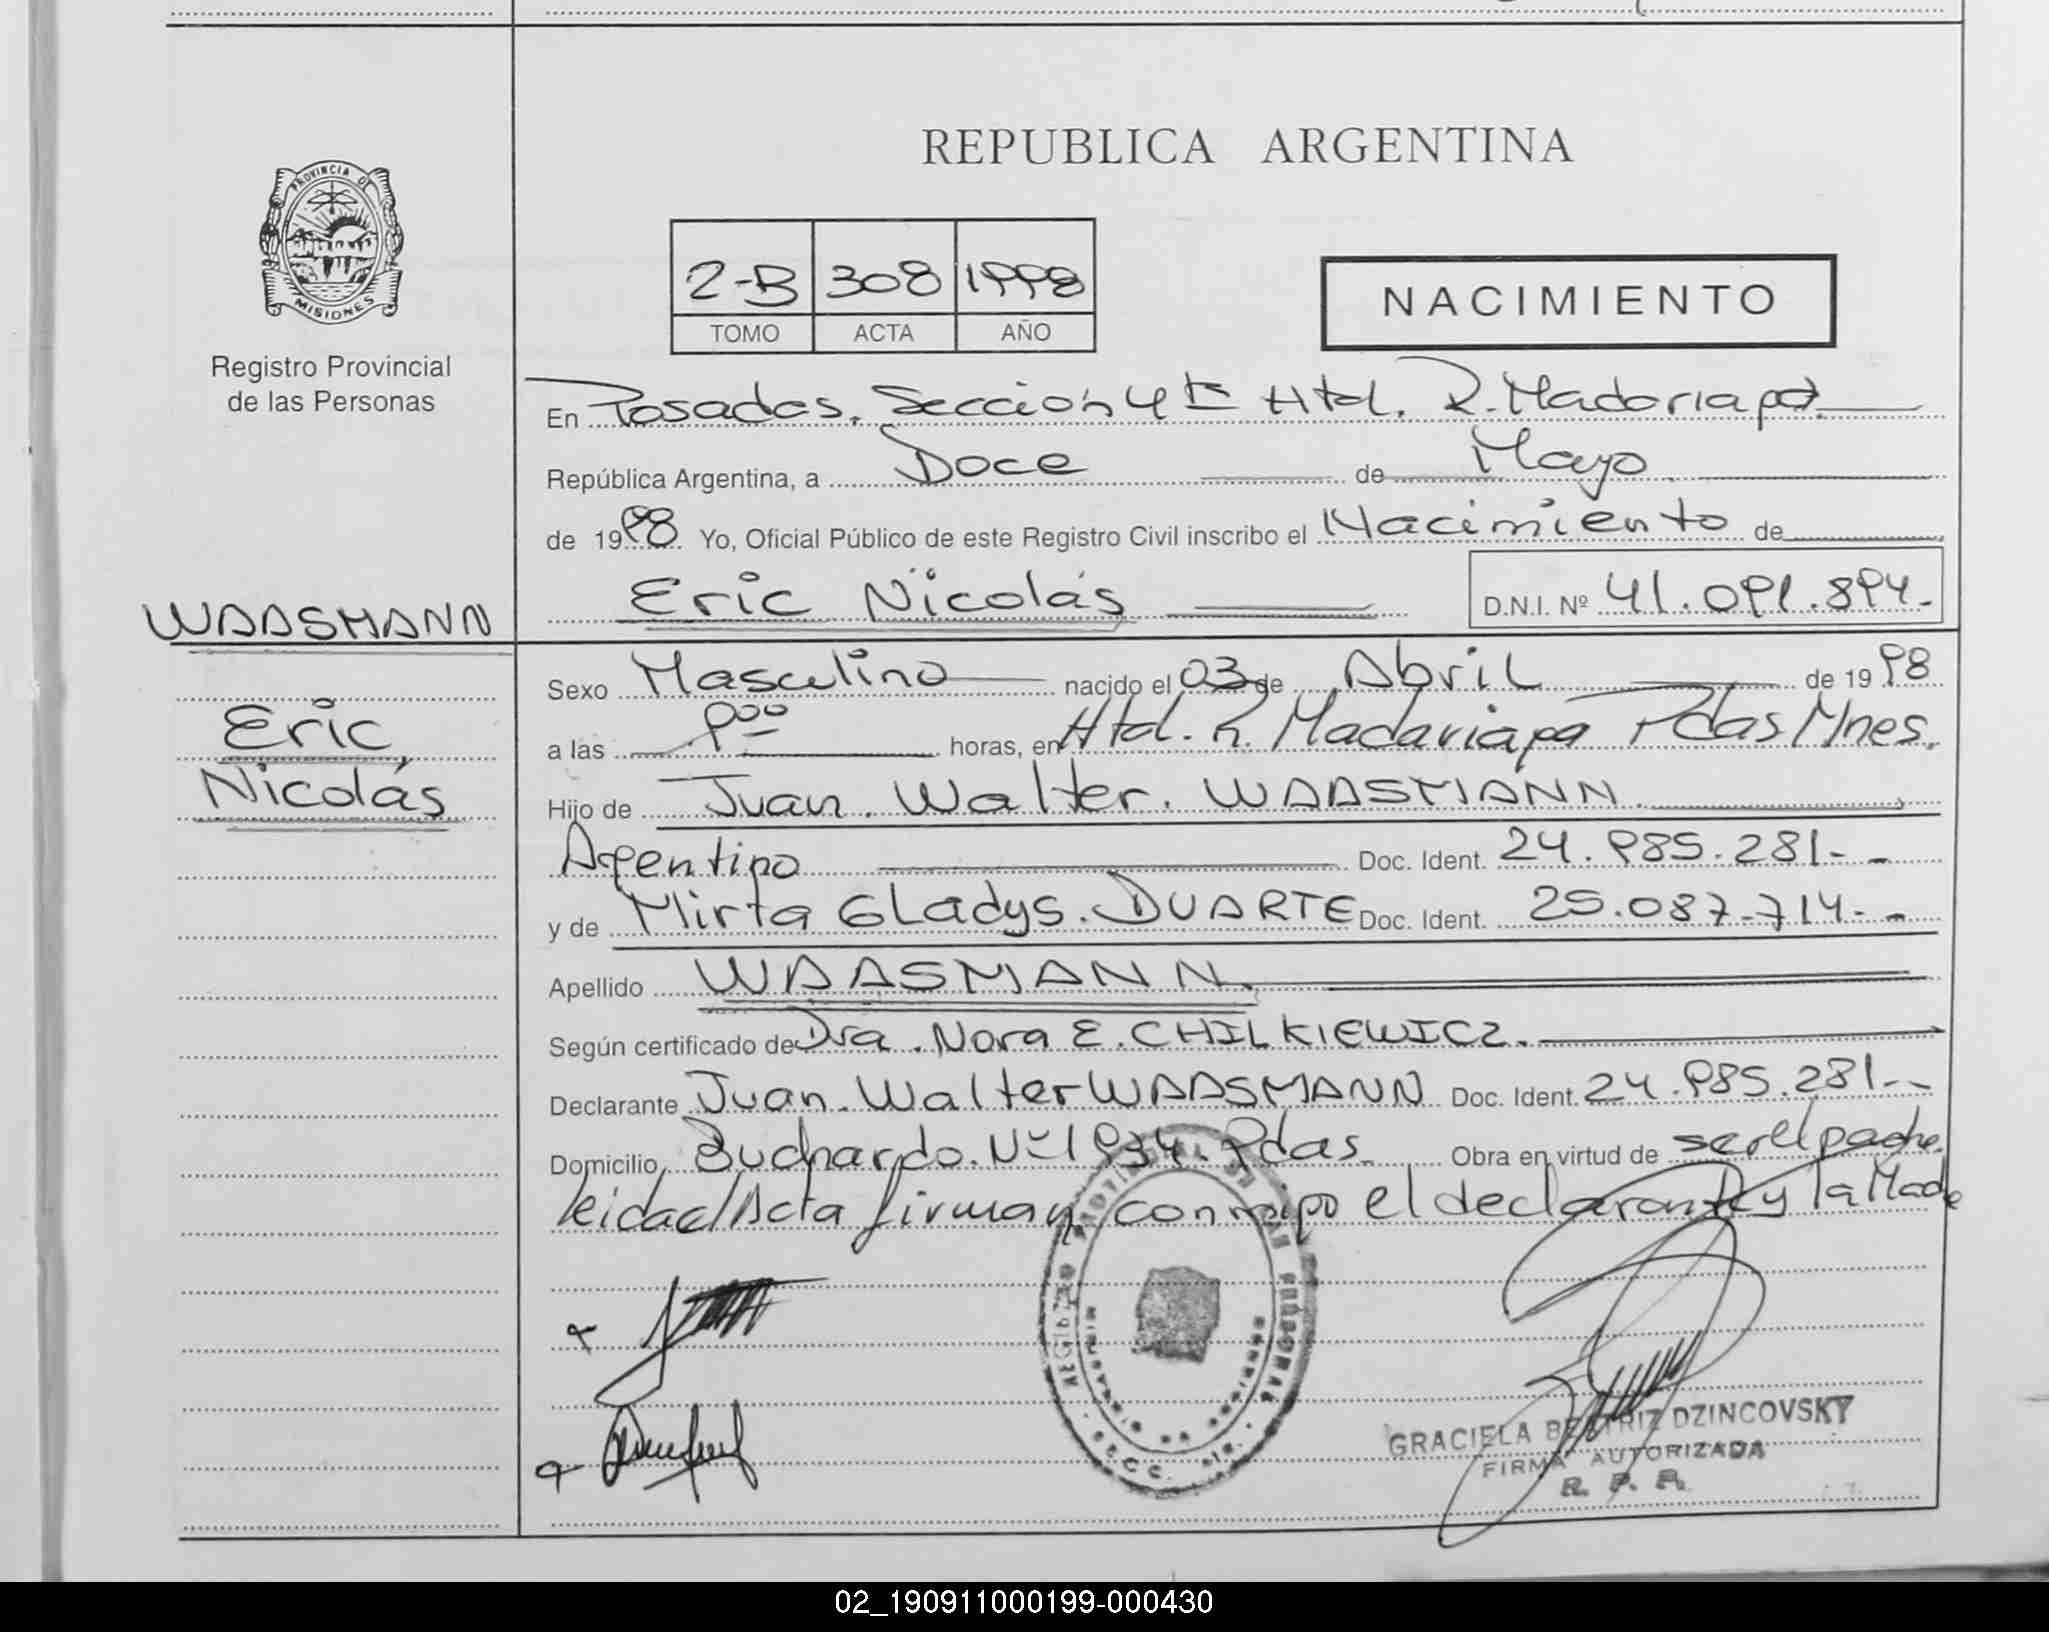 REPUBLICA ARGENTINA
PROVINCIA DE
MISIONES
Registro Provincial
de las Personas
2-B 308 1998
TOMO ACTA AÑO
NACIMIENTO
En Posadas. Sección 4ta Htal. R. Madariaga
República Argentina, a Doce de Mayo
de 1998 Yo, Oficial Público de este Registro Civil inscribo el Nacimiento de
Eric Nicolás D.N.I. Nº 41.091.894.-
WAASMANN
Eric
Nicolás
Sexo Masculino nacido el 03 de Abril de 1998
a las 9:00 horas, en Htal. R. Madariaga Pdas Mnes.
Hijo de Juan. Walter. WAASMANN.
Agentino Doc. Ident. 24.985.281.-
y de Mirta Gladys. DUARTE Doc. Ident. 25.087.714.-
Apellido WAASMANN.
Según certificado de Dra. Nora E. CHILKIEWICZ.
Declarante Juan. Walter WAASMANN Doc. Ident. 24.985.281.-
Domicilio Buchardo. Nº 1934. Pdas. Obra en virtud de ser el padre.
leida el Acta firman conmigo el declarante y la Made
GRACIELA BEATRIZ DZINCOVSKY
FIRMA AUTORIZADA
R. P. P.
02_190911000199-000430